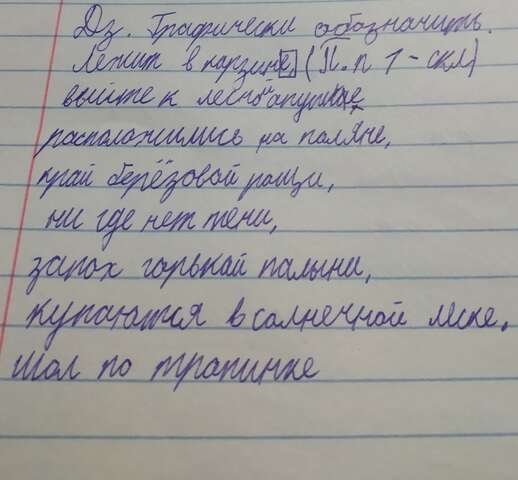 Дз. Графически обозначить.
Лежит в карзине, (П.п 1-скл)
выйте к лесной апушке,
расположились на паляне,
край берёзовой рощи,
ни где нет тени,
запох горькай палыни,
купаются в солнечной ляске,
шол по трапинке